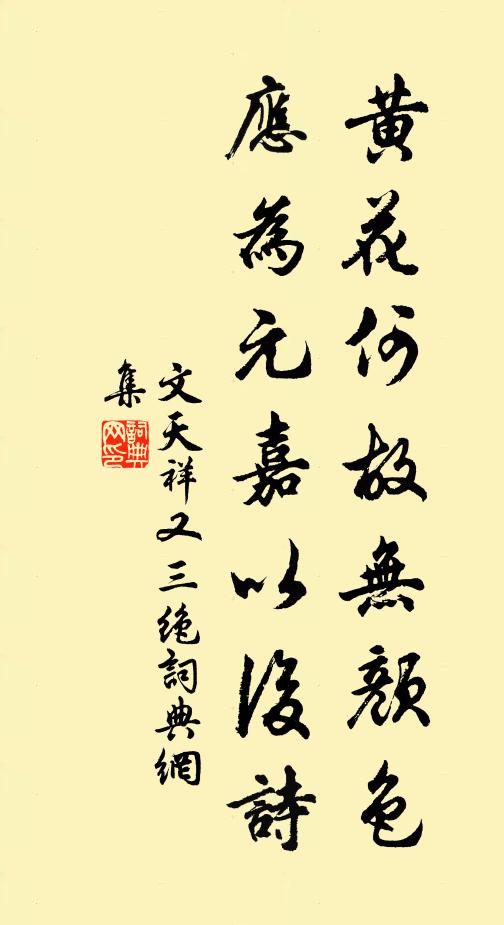 黃花何故無顏色
應為元嘉以後詩
文天祥又三絕詞典網
集
詞典網印